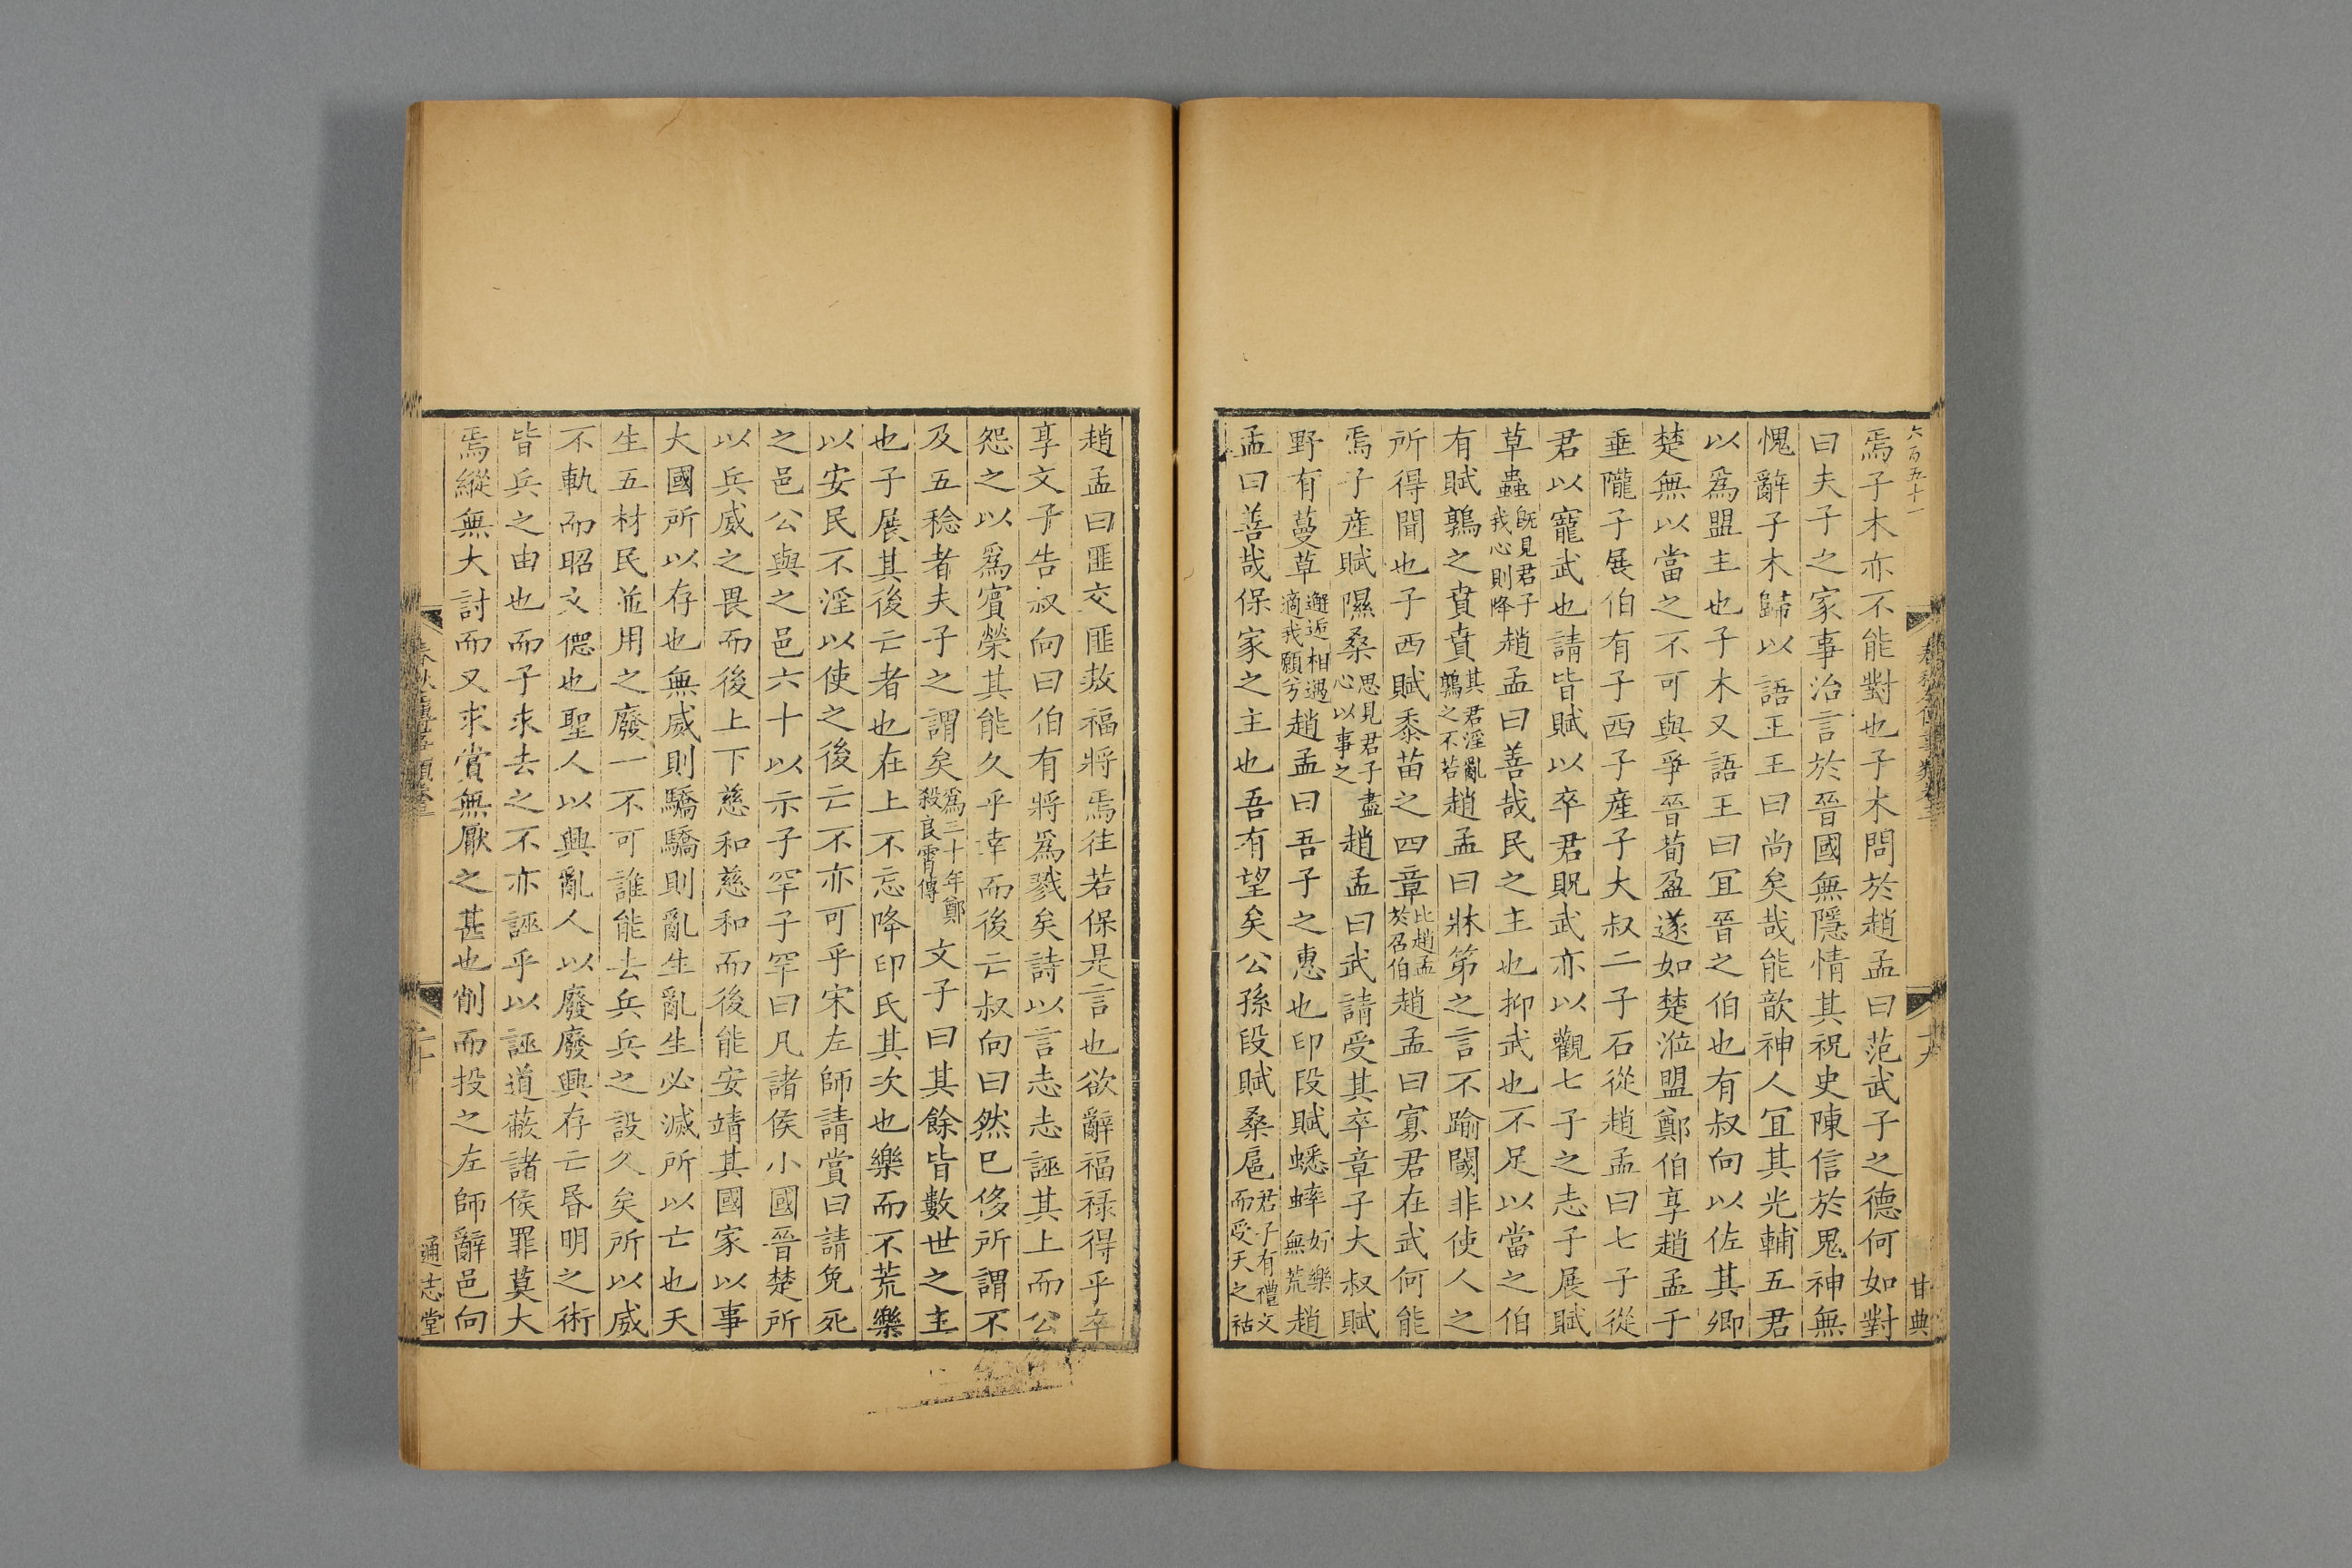 六百五十一
焉子木亦不能對也子木問於趙孟曰范武子之德何如對
曰夫子之家事治言於晉國無隱情其祝史陳信於鬼神無
愧辭子木歸以語王王曰尚矣哉能歆神人宜其光輔五君
以爲盟主也子木又語王曰宜晉之伯也有叔向以佐其卿
楚無以當之不可與爭晉荀盈遂如楚涖盟鄭伯享趙孟于
垂隴子展伯有子西子產子大叔二子石從趙孟曰七子從
君以寵武也請皆賦以卒君貺武亦以觀七子之志子展賦
草蟲旣見君子我心則降趙孟曰善哉民之主也抑武也不足以當之伯
有賦鶉之賁賁其君淫亂鶉之不若趙孟曰牀笫之言不踰閾非使人之
所得聞也子西賦黍苗之四章比趙孟於召伯趙孟曰寡君在武何能
焉子產賦隰桑思見君子盡心以事之趙孟曰武請受其卒章子大叔賦
野有蔓草邂逅相遇適我願兮趙孟曰吾子之惠也印段賦蟋蟀好樂無荒趙
孟曰善哉保家之主也吾有望矣公孫段賦桑扈君子有禮文而受天之祜
十九
甘典
趙孟曰匪交匪敖福將焉往若保是言也欲辭福祿得乎卒
享文子告叔向曰伯有將爲戮矣詩以言志志誣其上而公
怨之以爲賓榮其能久乎幸而後亡叔向曰然已侈所謂不
及五稔者夫子之謂矣爲三十年鄭殺良霄傳文子曰其餘皆數世之主
也子展其後亡者也在上不忘降印氏其次也樂而不荒樂
以安民不淫以使之後亡不亦可乎宋左師請賞曰請免死
之邑公與之邑六十以示子罕子罕曰凡諸侯小國晉楚所
以兵威之畏而後上下慈和慈和而後能安靖其國家以事
大國所以存也無威則驕驕則亂生亂生必滅所以亡也天
生五材民並用之廢一不可誰能去兵兵之設久矣所以威
不軌而昭文德也聖人以興亂人以廢廢興存亡昬明之術
皆兵之由也而子求去之不亦誣乎以誣道蔽諸侯罪莫大
焉縱無大討而又求賞無厭之甚也削而投之左師辭邑向
二十
通志堂